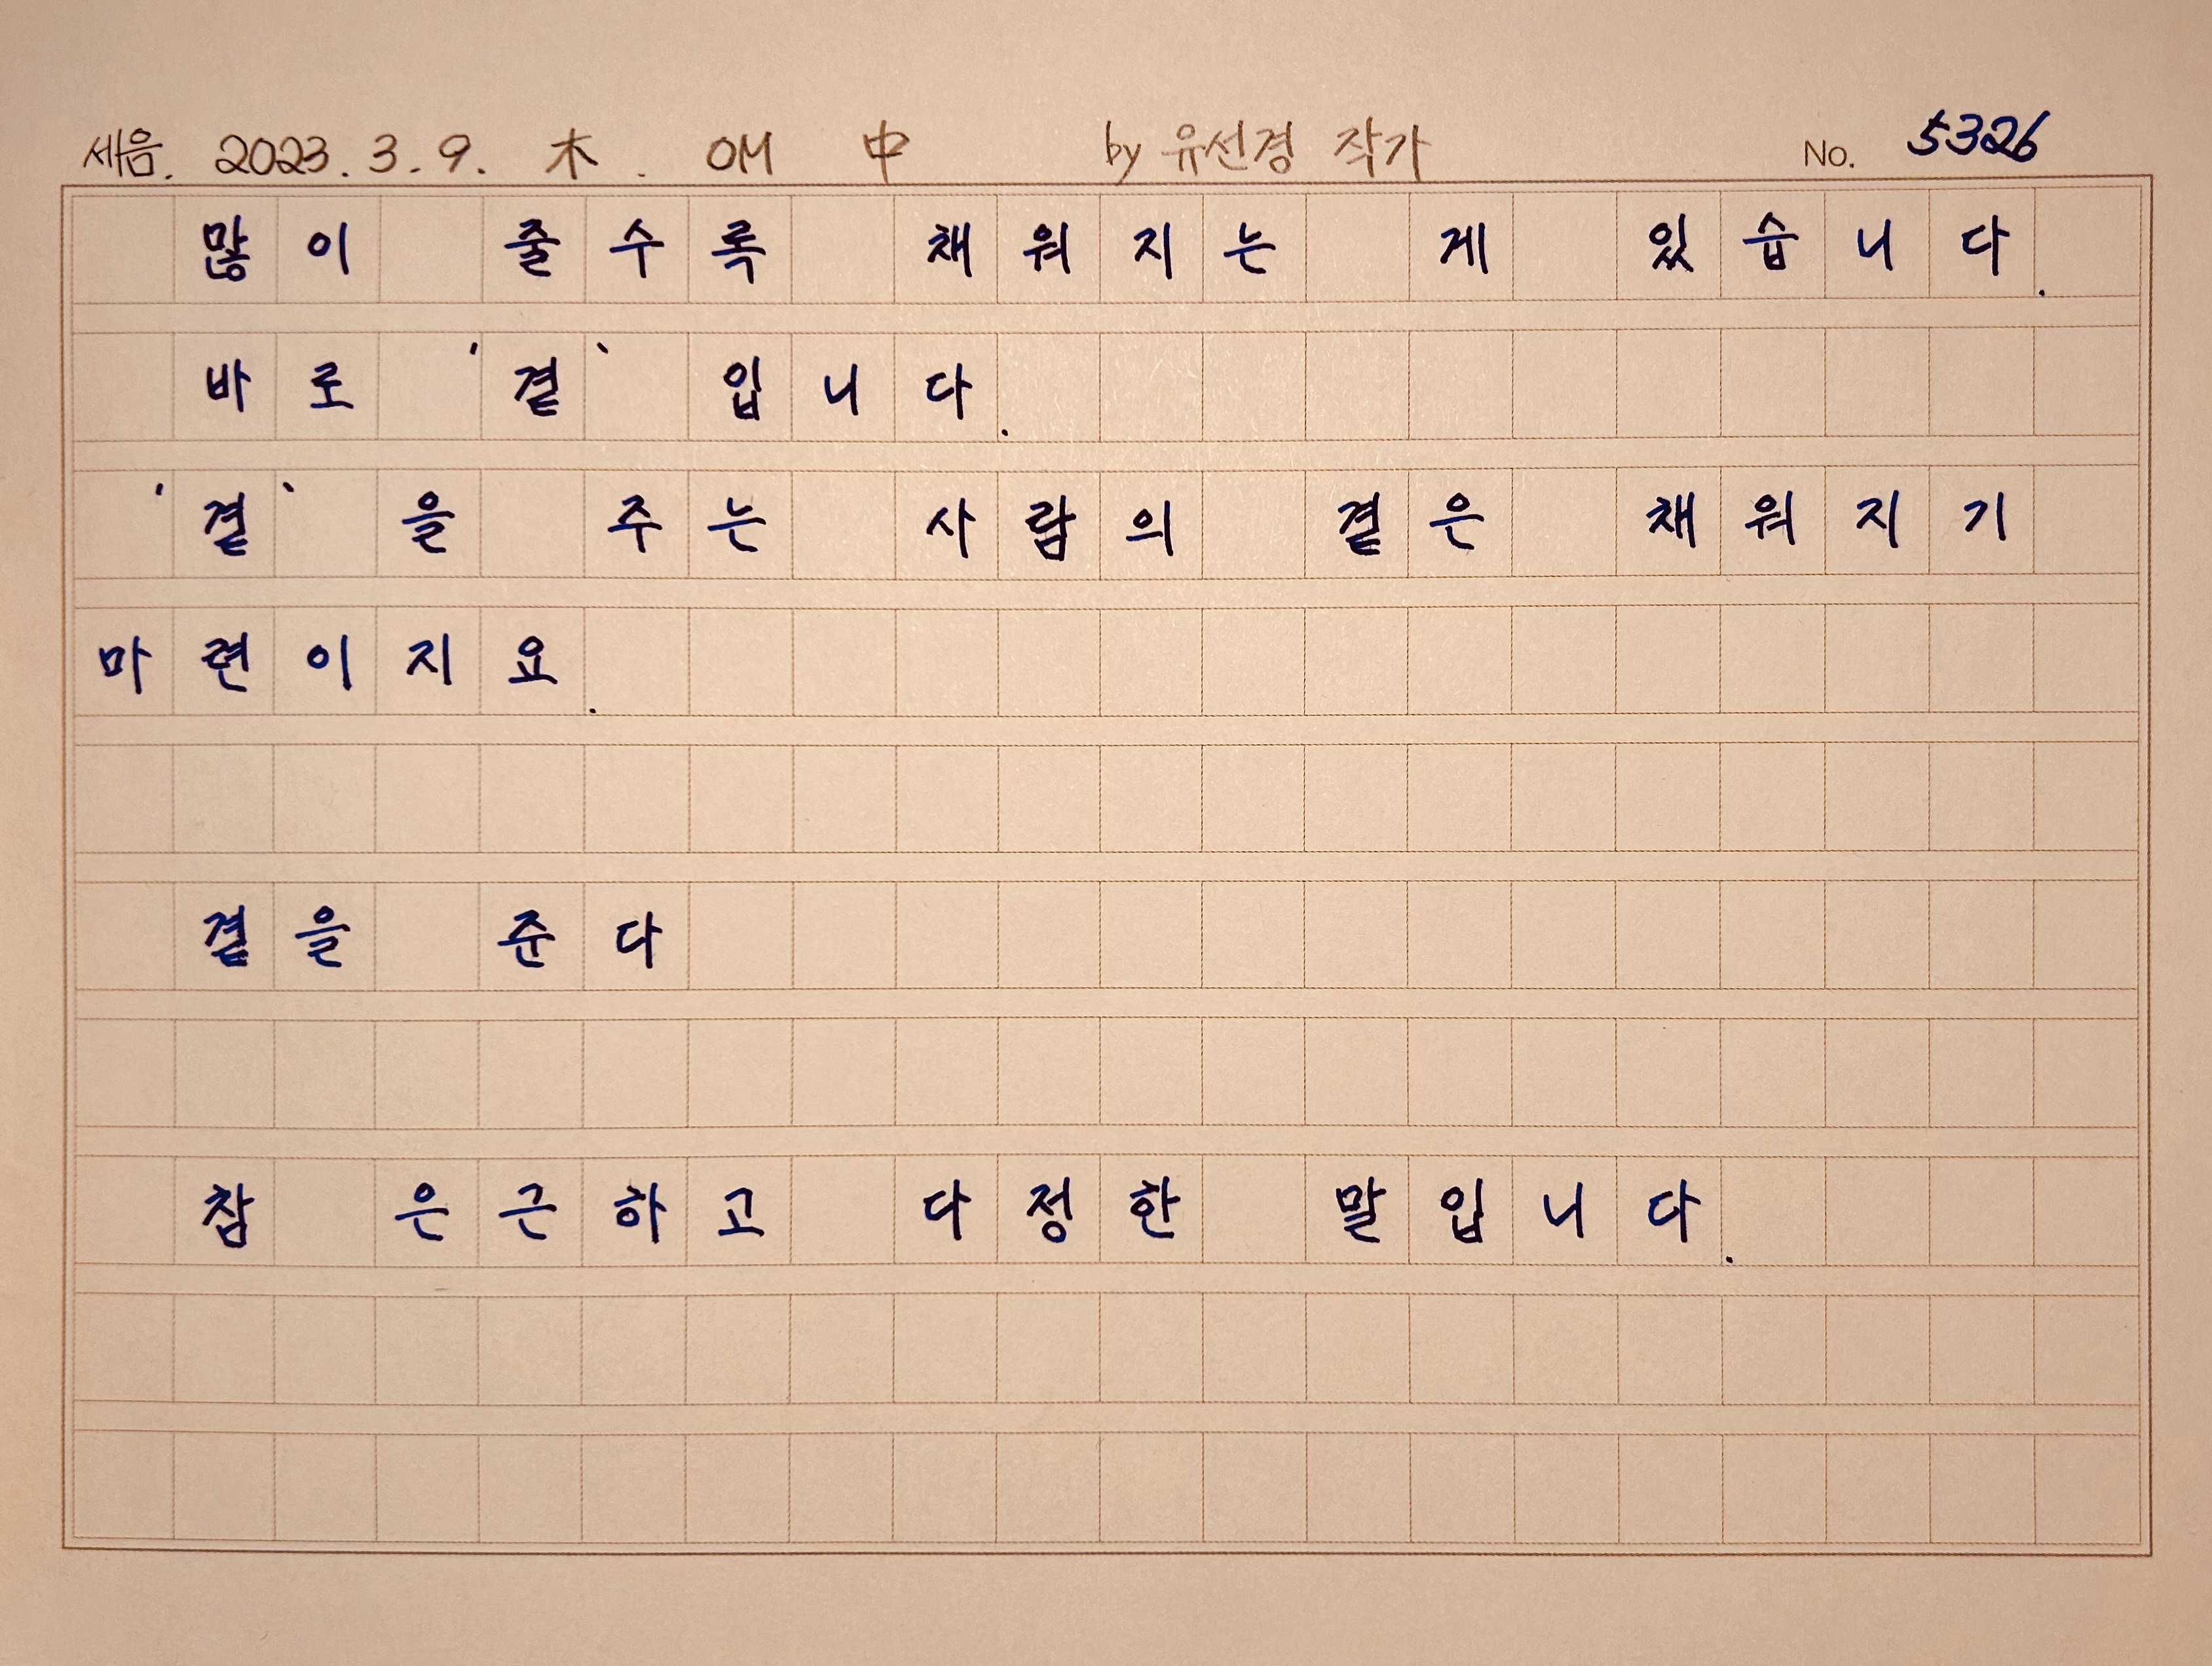 세음. 2023. 3. 9. 木. OM 中 by 유선경 작가 No. 5326
많이 줄수록 채워지는 게 있습니다.
바로 '곁' 입니다.
'곁' 을 주는 사람의 곁은 채워지기
마련이지요.
곁을 준다
참 은근하고 다정한 말입니다.